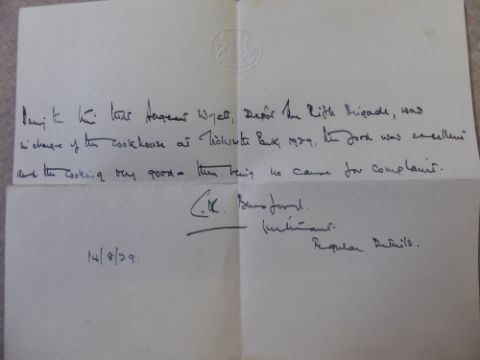 During the time that Sergeant Wyatt, Depôt The Rifle Brigade, was
in charge of the cookhouse at Tidworth Park 1929, the food was excellent
and the cooking very good – there being no cause for complaint.
C.K.
Lieutenant.
Regular Details.
14/8/29.